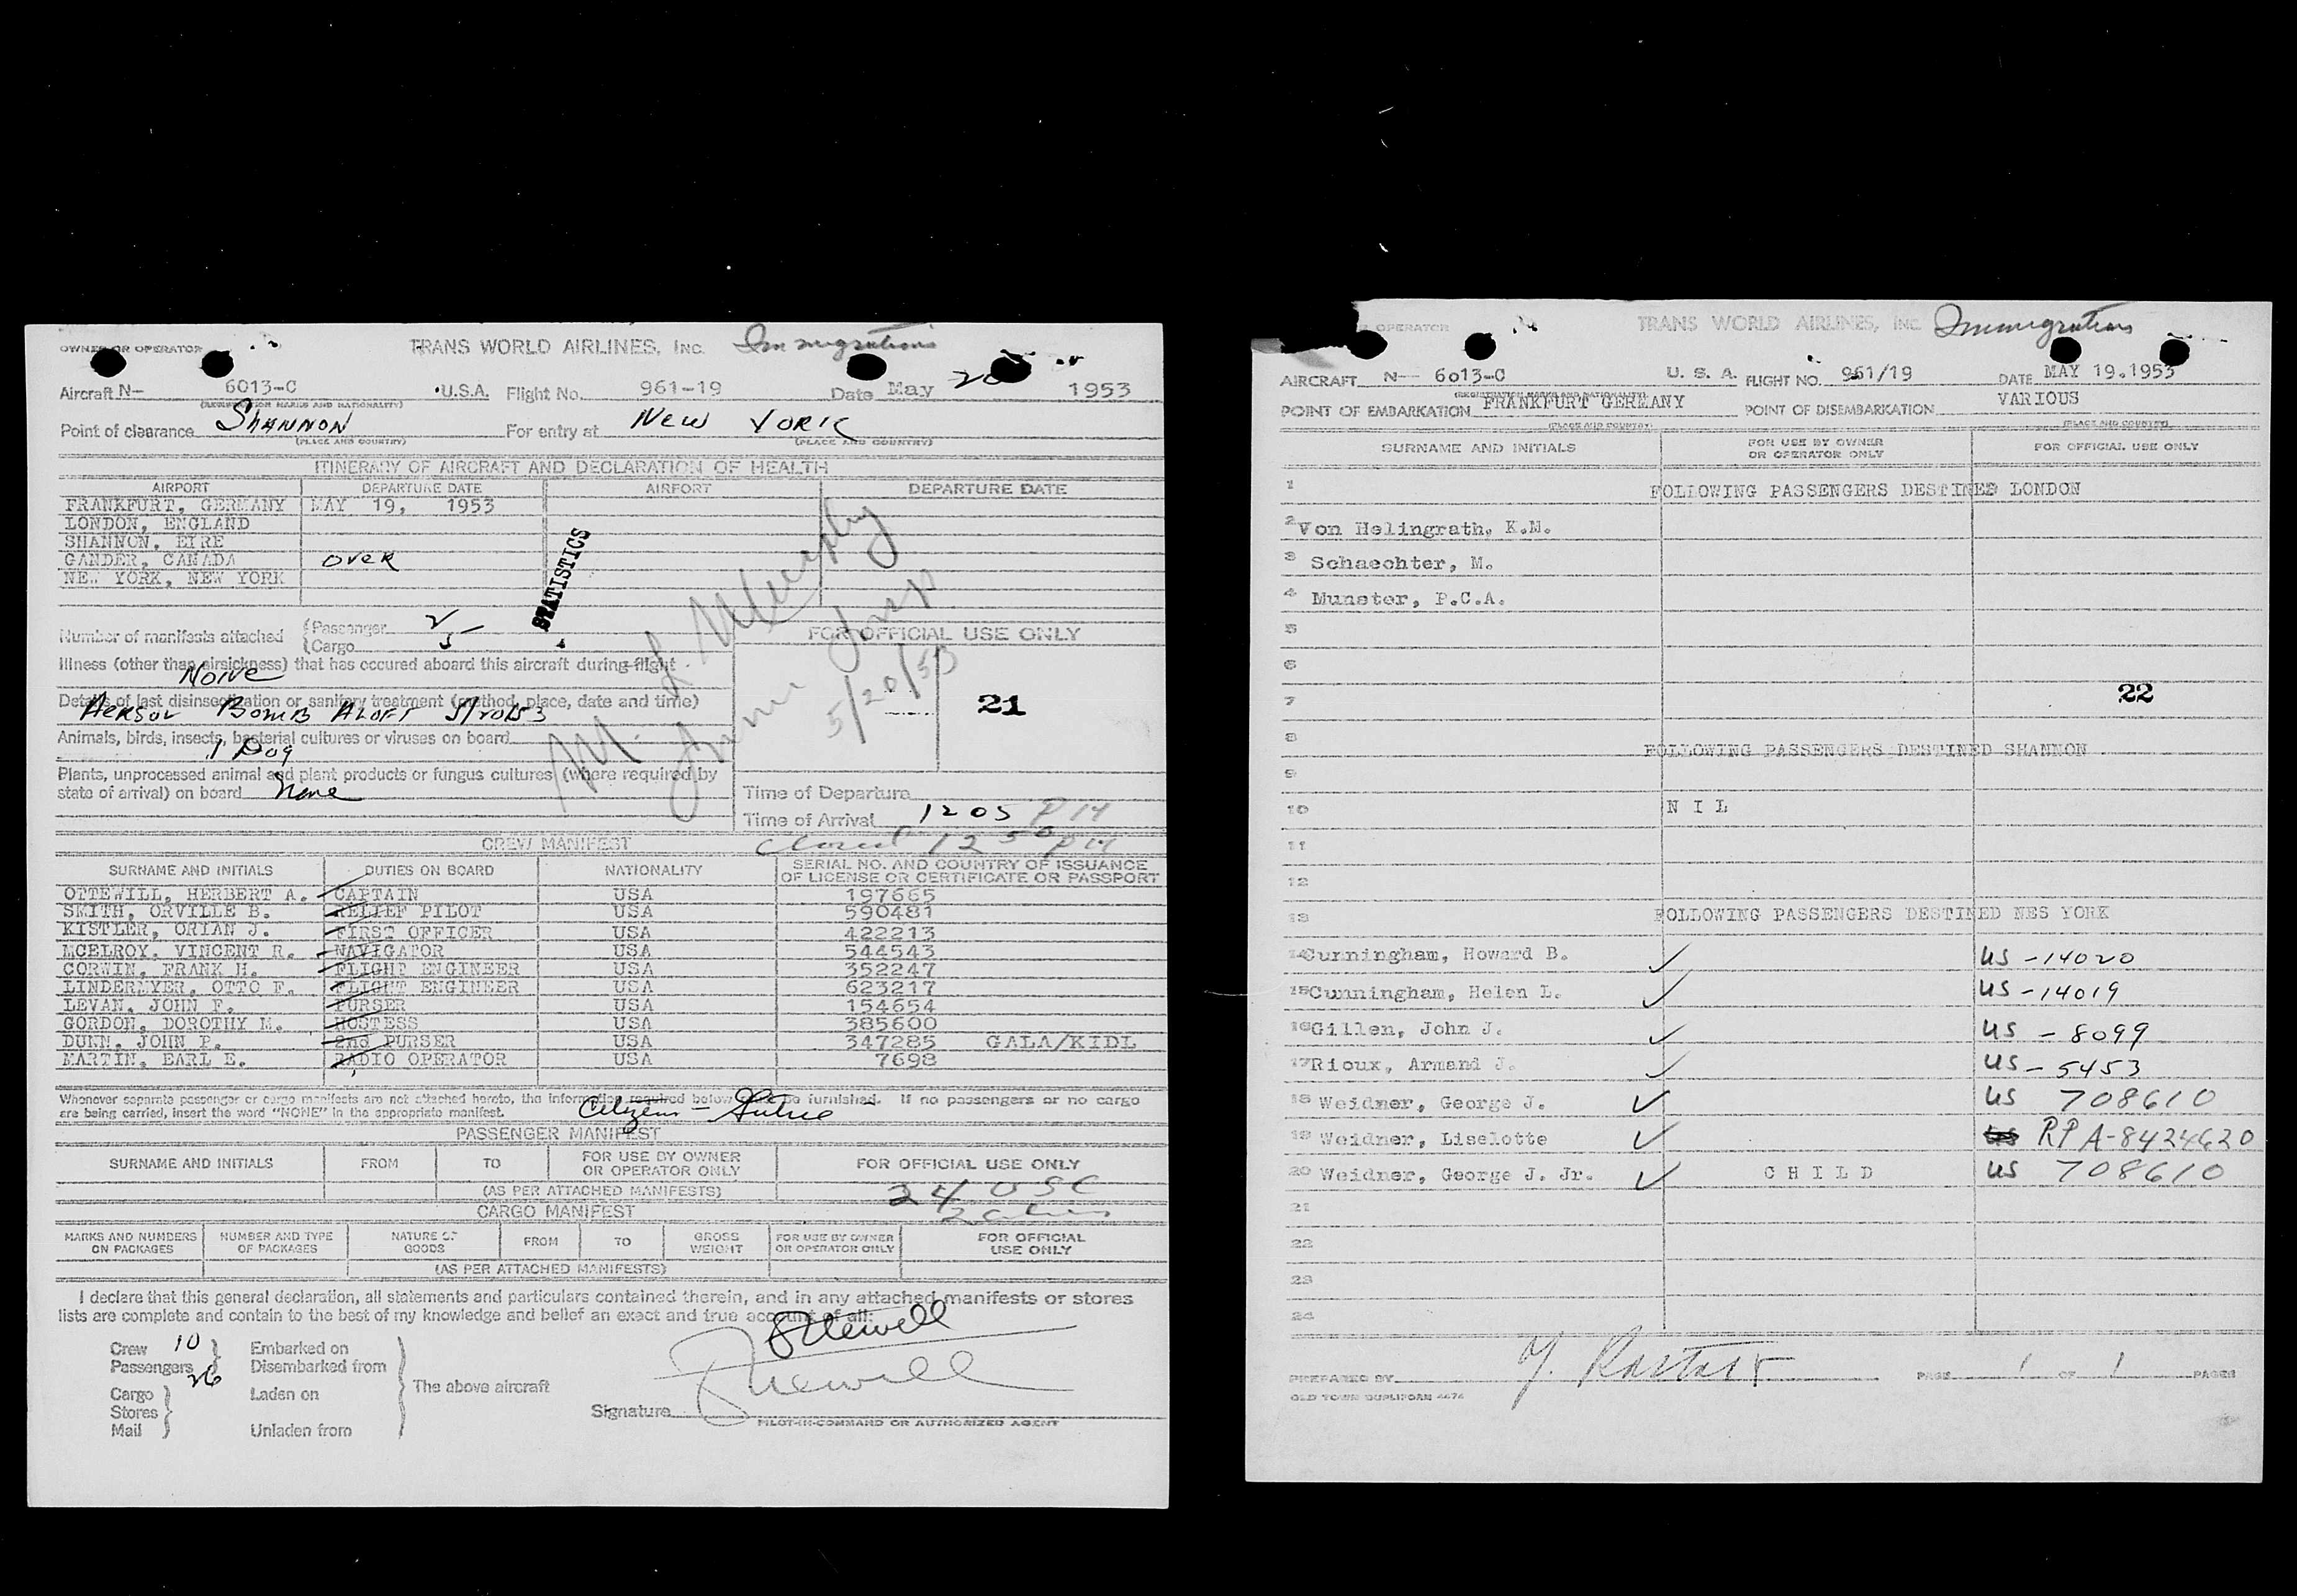 OWNER OR OPERATOR TRANS WORLD AIRLINES, INC. Immigration
Aircraft N- 6013-C U.S.A. Flight No. 961-19 Date May 20 1953
(REGISTRATION MARKS AND NATIONALITY)
Point of clearance SHANNON For entry at NEW YORK
(PLACE AND COUNTRY) (PLACE AND COUNTRY)
ITINERARY OF AIRCRAFT AND DECLARATION OF HEALTH
AIRPORT DEPARTURE DATE AIRPORT DEPARTURE DATE
FRANKFURT, GERMANY MAY 19, 1953
LONDON, ENGLAND
SHANNON, EIRE
GANDER, CANADA OVER
NEW YORK, NEW YORK
STATISTICS
Number of manifests attached {Passenger 2
{Cargo 5
FOR OFFICIAL USE ONLY
Illness (other than airsickness) that has occured aboard this aircraft during flight
None
Details of last disinsectization or sanitary treatment (method, place, date and time)
AERSOL BOMB ALOFT 5/20/53
M. L Murphy
5/20/53
21
Animals, birds, insects, bacterial cultures or viruses on board
1 Dog
Plants, unprocessed animal and plant products or fungus cultures (where required by
state of arrival) on board None
Time of Departure
Time of Arrival 1205 PM
CREW MANIFEST Closed 12 50 PM
SURNAME AND INITIALS DUTIES ON BOARD NATIONALITY SERIAL NO. AND COUNTRY OF ISSUANCE
OF LICENSE OR CERTIFICATE OR PASSPORT
OTTEWILL, HERBERT A. CAPTAIN USA 197665
SMITH, ORVILLE B. RELIEF PILOT USA 590481
KISTLER, ORIAN J. FIRST OFFICER USA 422213
MCELROY, VINCENT R. NAVIGATOR USA 544543
CORWIN, FRANK H. FLIGHT ENGINEER USA 352247
LINDERMYER, OTTO F. FLIGHT ENGINEER USA 623217
LEVAN, JOHN F. PURSER USA 154654
GORDON, DOROTHY M. HOSTESS USA 385600
DUNN, JOHN P. 2nd PURSER USA 347285 GALA/KIDL
MARTIN, EARL E. RADIO OPERATOR USA 7698
Whenever separate passenger or cargo manifests are not attached hereto, the information required below be furnished. If no passengers or no cargo
are being carried, insert the word "NONE" in the appropriate manifest. Citizens -
PASSENGER MANIFEST
SURNAME AND INITIALS FROM TO FOR USE BY OWNER
OR OPERATOR ONLY FOR OFFICIAL USE ONLY
(AS PER ATTACHED MANIFESTS) 24 USC
CARGO MANIFEST 2 aliens
MARKS AND NUMBERS
ON PACKAGES NUMBER AND TYPE
OF PACKAGES NATURE OF
GOODS FROM TO GROSS
WEIGHT FOR USE BY OWNER
OR OPERATOR ONLY FOR OFFICIAL
USE ONLY
(AS PER ATTACHED MANIFESTS)
I declare that this general declaration, all statements and particulars contained therein, and in any attached manifests or stores
lists are complete and contain to the best of my knowledge and belief an exact and true account of all:
Crew 10 Embarked on
Passengers 26 Disembarked from
Cargo Laden on The above aircraft
Stores
Mail Unladen from
Ottewill
Signature Ottewill
PILOT-IN-COMMAND OR AUTHORIZED AGENT
OPERATOR TRANS WORLD AIRLINES, INC Immigration
AIRCRAFT N-- 6013-C U. S. A. FLIGHT NO. 961/19 DATE MAY 19.1953
(REGISTRATION MARKS AND NATIONALITY)
POINT OF EMBARKATION FRANKFURT GERMANY POINT OF DISEMBARKATION VARIOUS
(PLACE AND COUNTRY) (PLACE AND COUNTRY)
SURNAME AND INITIALS FOR USE BY OWNER
OR OPERATOR ONLY FOR OFFICIAL USE ONLY
1 FOLLOWING PASSENGERS DESTINED LONDON
2 Von Helingrath, K.M.
3 Schaechter, M.
4 Munster, P.C.A.
5
6
7 22
8 FOLLOWING PASSENGERS DESTINED SHANNON
9
10 N I L
11
12
13 FOLLOWING PASSENGERS DESTINED NES YORK
14 Cunningham, Howard B. ✓ US -14020
15 Cunningham, Helen L. ✓ US -14019
16 Gillen, John J. ✓ US - 8099
17 Rioux, Armand J. ✓ US - 5453
18 Weidner, George J. ✓ US 708610
19 Weidner, Liselotte ✓ RP A-8424620
20 Weidner, George J. Jr. ✓ C H I L D US 708610
21
22
23
24
PREPARED BY PAGE 1 OF 1 PAGES
OLD TOWN DUPLIFORM 4474